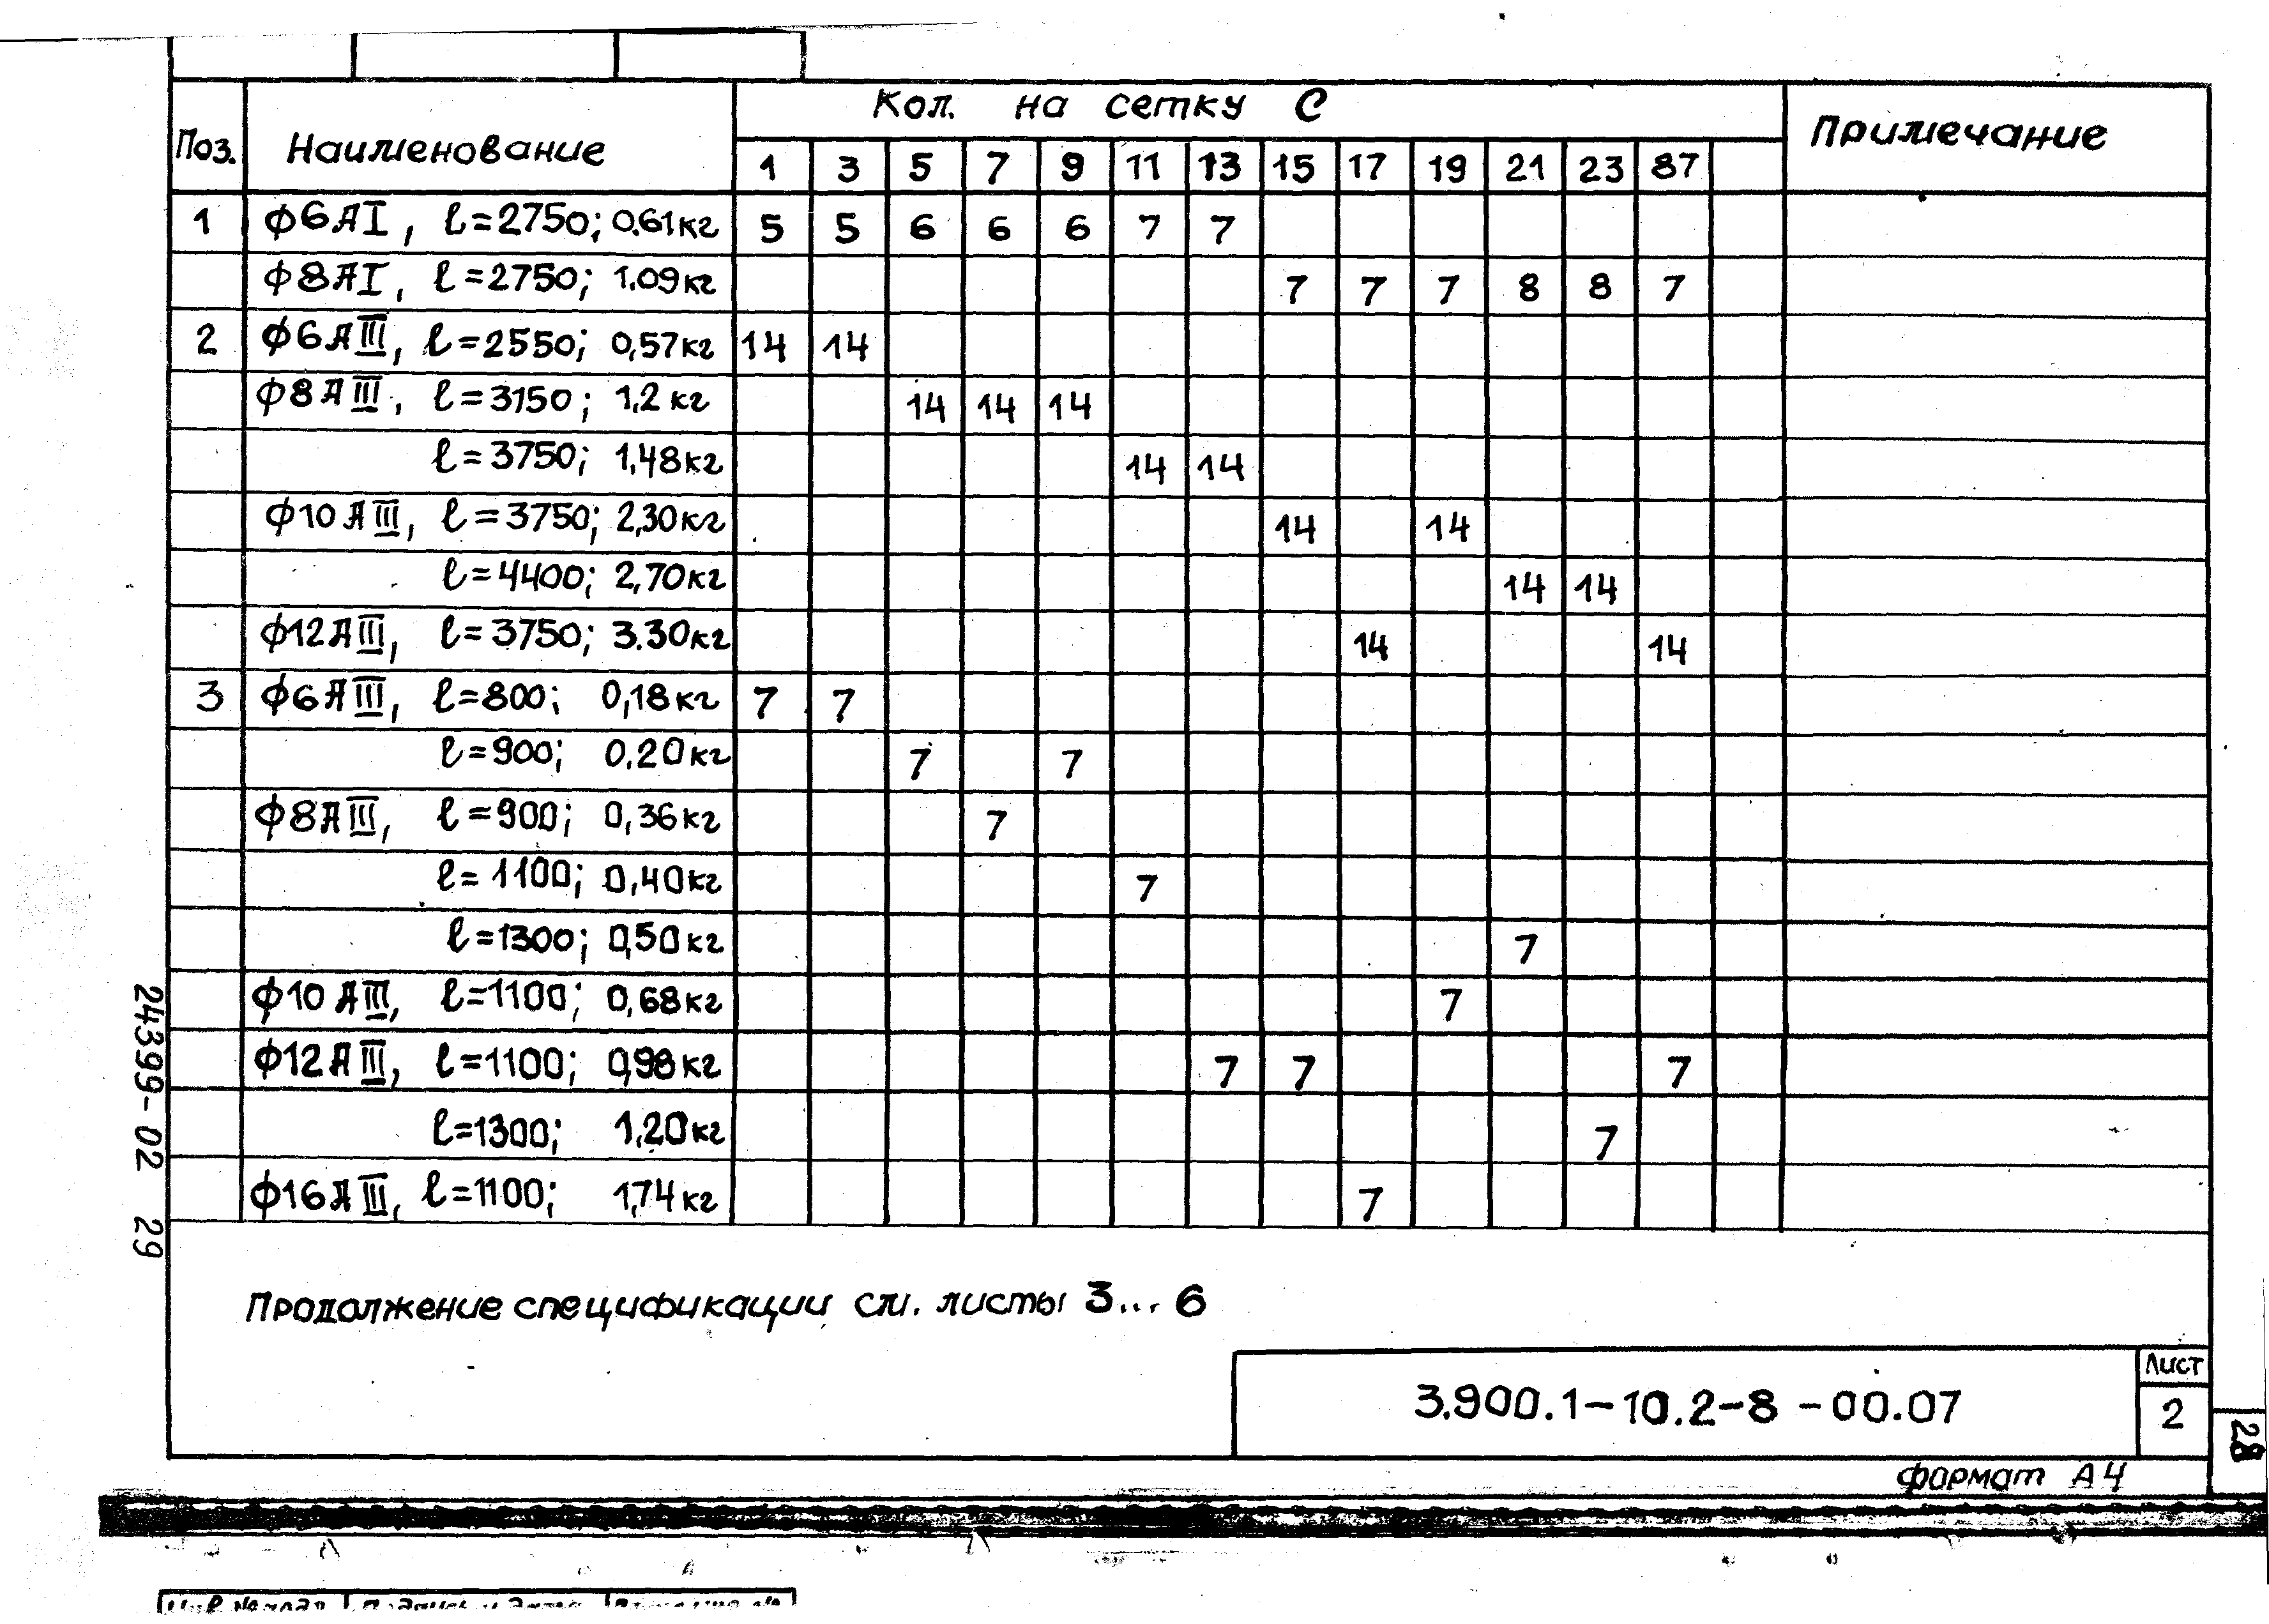 Кол. на сетку С
Поз. Наименование Примечание
1 3 5 7 9 11 13 15 17 19 21 23 87
1 ф6АI, ℓ=2750; 0.61кг 5 5 6 6 6 7 7
ф8АI, ℓ=2750; 1.09кг 7 7 7 8 8 7
2 ф6АIII, ℓ=2550; 0,57кг 14 14
ф8АIII, ℓ=3150; 1,2кг 14 14 14
ℓ=3750; 1,48кг 14 14
ф10АIII, ℓ=3750; 2,30кг 14 14
ℓ=4400; 2,70кг 14 14
ф12АIII, ℓ=3750; 3.30кг 14 14
3 ф6АIII, ℓ=800; 0,18кг 7 7
ℓ=900; 0,20кг 7 7
ф8АIII, ℓ=900; 0,36кг 7
ℓ=1100; 0,40кг 7
ℓ=1300; 0,50кг 7
ф10АIII, ℓ=1100; 0,68кг 7
ф12АIII, ℓ=1100; 0,98кг 7 7 7
ℓ=1300; 1,20кг 7
ф16АIII, ℓ=1100; 1,74кг 7
24399-02 29
Продолжение спецификации см. листы 3...6
3.900.1-10.2-8-00.07
Лист
2
28
формат А4